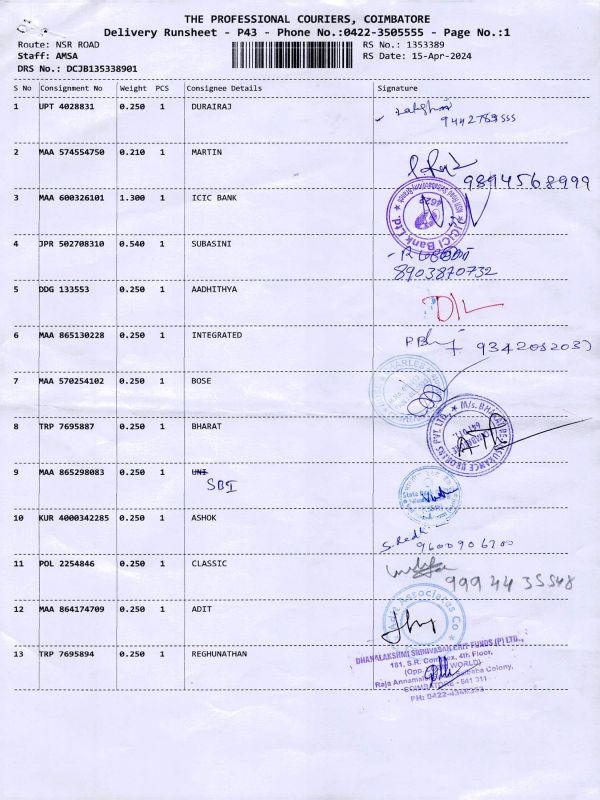 THE PROFESSIONAL COURIERS, COIMBATORE
Delivery Runsheet - P43 - Phone No.:0422-3505555 - Page No.:1
Route: NSR ROAD RS No.: 1353389
Staff: AMSA RS Date: 15-Apr-2024
DRS No.: DCJB135338901
S No Consignment No Weight PCS Consignee Details Signature
1 UPT 4028831 0.250 1 DURAIRAJ
2 MAA 574554750 0.210 1 MARTIN
9894568999
3 MAA 600326101 1.300 1 ICIC BANK
ICICI Bank Ltd.
4 JPR 502708310 0.540 1 SUBASINI
8903870732
5 DDG 133553 0.250 1 AADHITHYA
6 MAA 865130228 0.250 1 INTEGRATED
7 MAA 570254102 0.250 1 BOSE
8 TRP 7695887 0.250 1 BHARAT
9 MAA 865298083 0.250 1 UNI
SBI
10 KUR 4000342285 0.250 1 ASHOK
11 POL 2254846 0.250 1 CLASSIC
12 MAA 864174709 0.250 1 ADIT
Adit Associates Co
13 TRP 7695894 0.250 1 REGHUNATHAN
DHANALAKSHMI SRINIVASAN CHIT FUNDS (P) LTD.,
181, S.R. Complex, 4th Floor,
(Opp. WORLD)
Raja Annamalai Colony,
COIMBATORE - 641 011